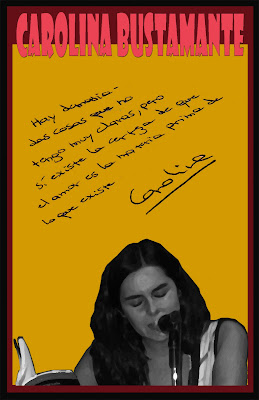 CAROLINA BUSTAMANTE
Hay demasia-
das cosas que no
tengo muy claras, pero
sí existe la certeza de que
el amor es la materia prima de
lo que existe
Carolina